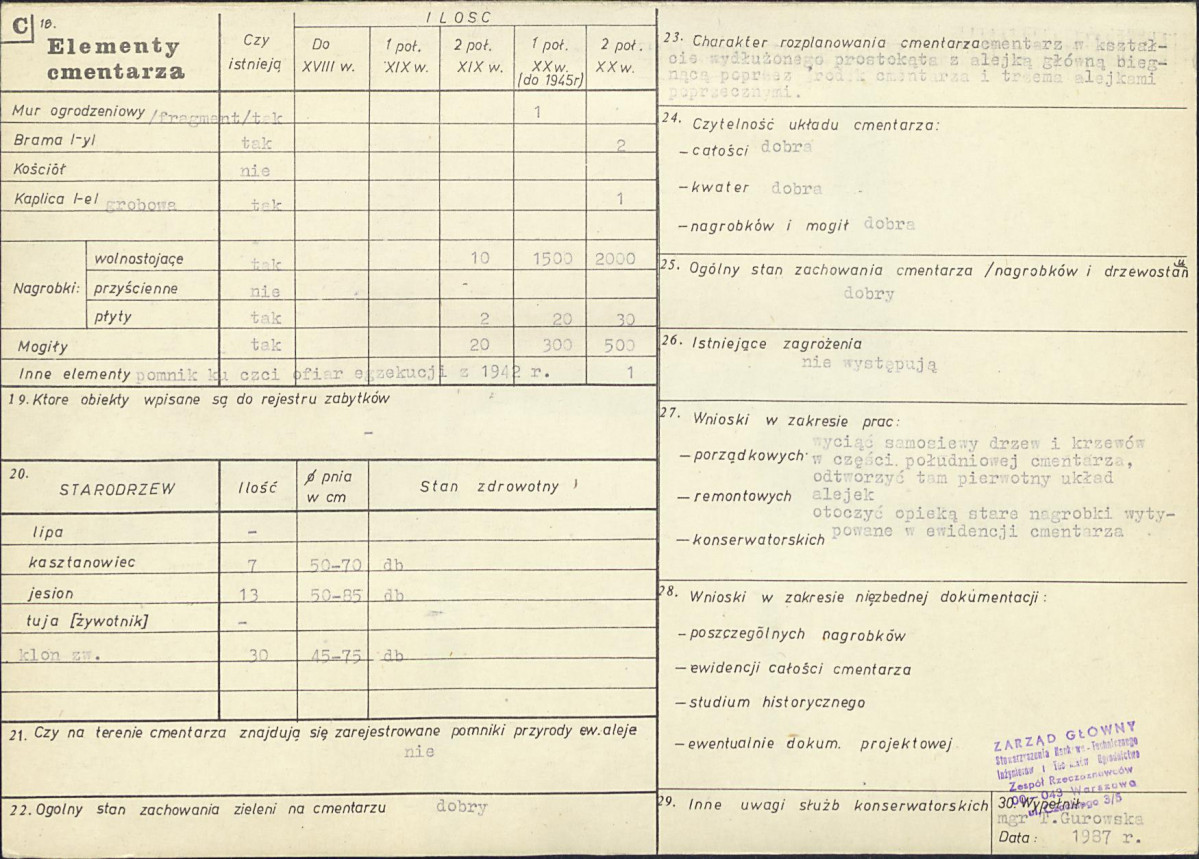 C 18. Elementy cmentarza
Czy istnieją
ILOŚĆ
Do XVIII w.
1 poł. XIX w.
2 poł. XIX w.
1 poł. XX w. [do 1945r]
2 poł. XX w.
Mur ogrodzeniowy /fragment/ tak 1
Brama /-y/ tak 2
Kościół nie
Kaplica /-e/ grobowa tak 1
Nagrobki:
wolnostojące tak 10 1500 2000
przyścienne nie
płyty tak 2 20 30
Mogiły tak 20 300 500
Inne elementy pomnik ku czci ofiar egzekucji z 1942 r. 1
19. Ktore obiekty wpisane są do rejestru zabytków
–
20. STARODRZEW Ilość ø pnia w cm Stan zdrowotny
lipa –
kasztanowiec 7 50-70 db
jesion 13 50-85 db
tuja [żywotnik] –
klon zw. 30 45-75 db
21. Czy na terenie cmentarza znajdują się zarejestrowane pomniki przyrody ew. aleje
nie
22. Ogolny stan zachowania zieleni na cmentarzu dobry
23. Charakter rozplanowania cmentarza cmentarz w kształ-
cie wydłużonego prostokąta z alejką główną bieg-
nącą poprzez środek cmentarza i trzema alejkami
poprzecznymi.
24. Czytelność układu cmentarza:
– całości dobra
– kwater dobra
– nagrobków i mogił dobra
25. Ogólny stan zachowania cmentarza /nagrobków i drzewostanu
dobry
26. Istniejące zagrożenia
nie występują
27. Wnioski w zakresie prac:
– porządkowych wyciąć samosiewy drzew i krzewów
w części południowej cmentarza,
odtworzyć tam pierwotny układ
– remontowych alejek
otoczyć opieką stare nagrobki wyty-
– konserwatorskich powane w ewidencji cmentarza
28. Wnioski w zakresie nięzbednej dokumentacji:
– poszczególnych nagrobków
– ewidencji całości cmentarza
– studium historycznego
– ewentualnie dokum. projektowej
ZARZĄD GŁOWNY
Stowarzyszenia Naukowo-Technicznego
Inżynierów i Techników Ogrodnictwa
Zespół Rzeczoznawców
00-043 Warszawa
ul. Czackiego 3/5
29. Inne uwagi służb konserwatorskich
30. Wypełnił
mgr T.Gurowska
Data: 1987 r.